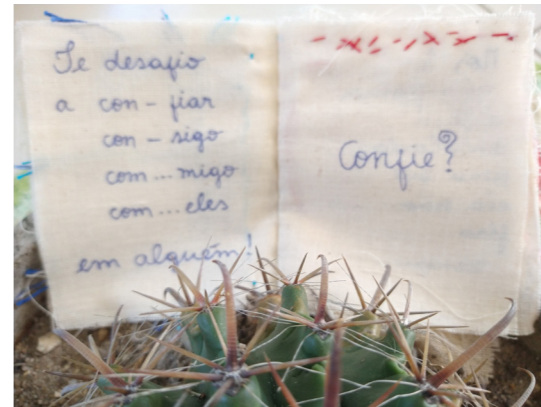 Te desafio
a con - fiar
con - sigo
com... migo
com... eles
em alguém!
Confie?